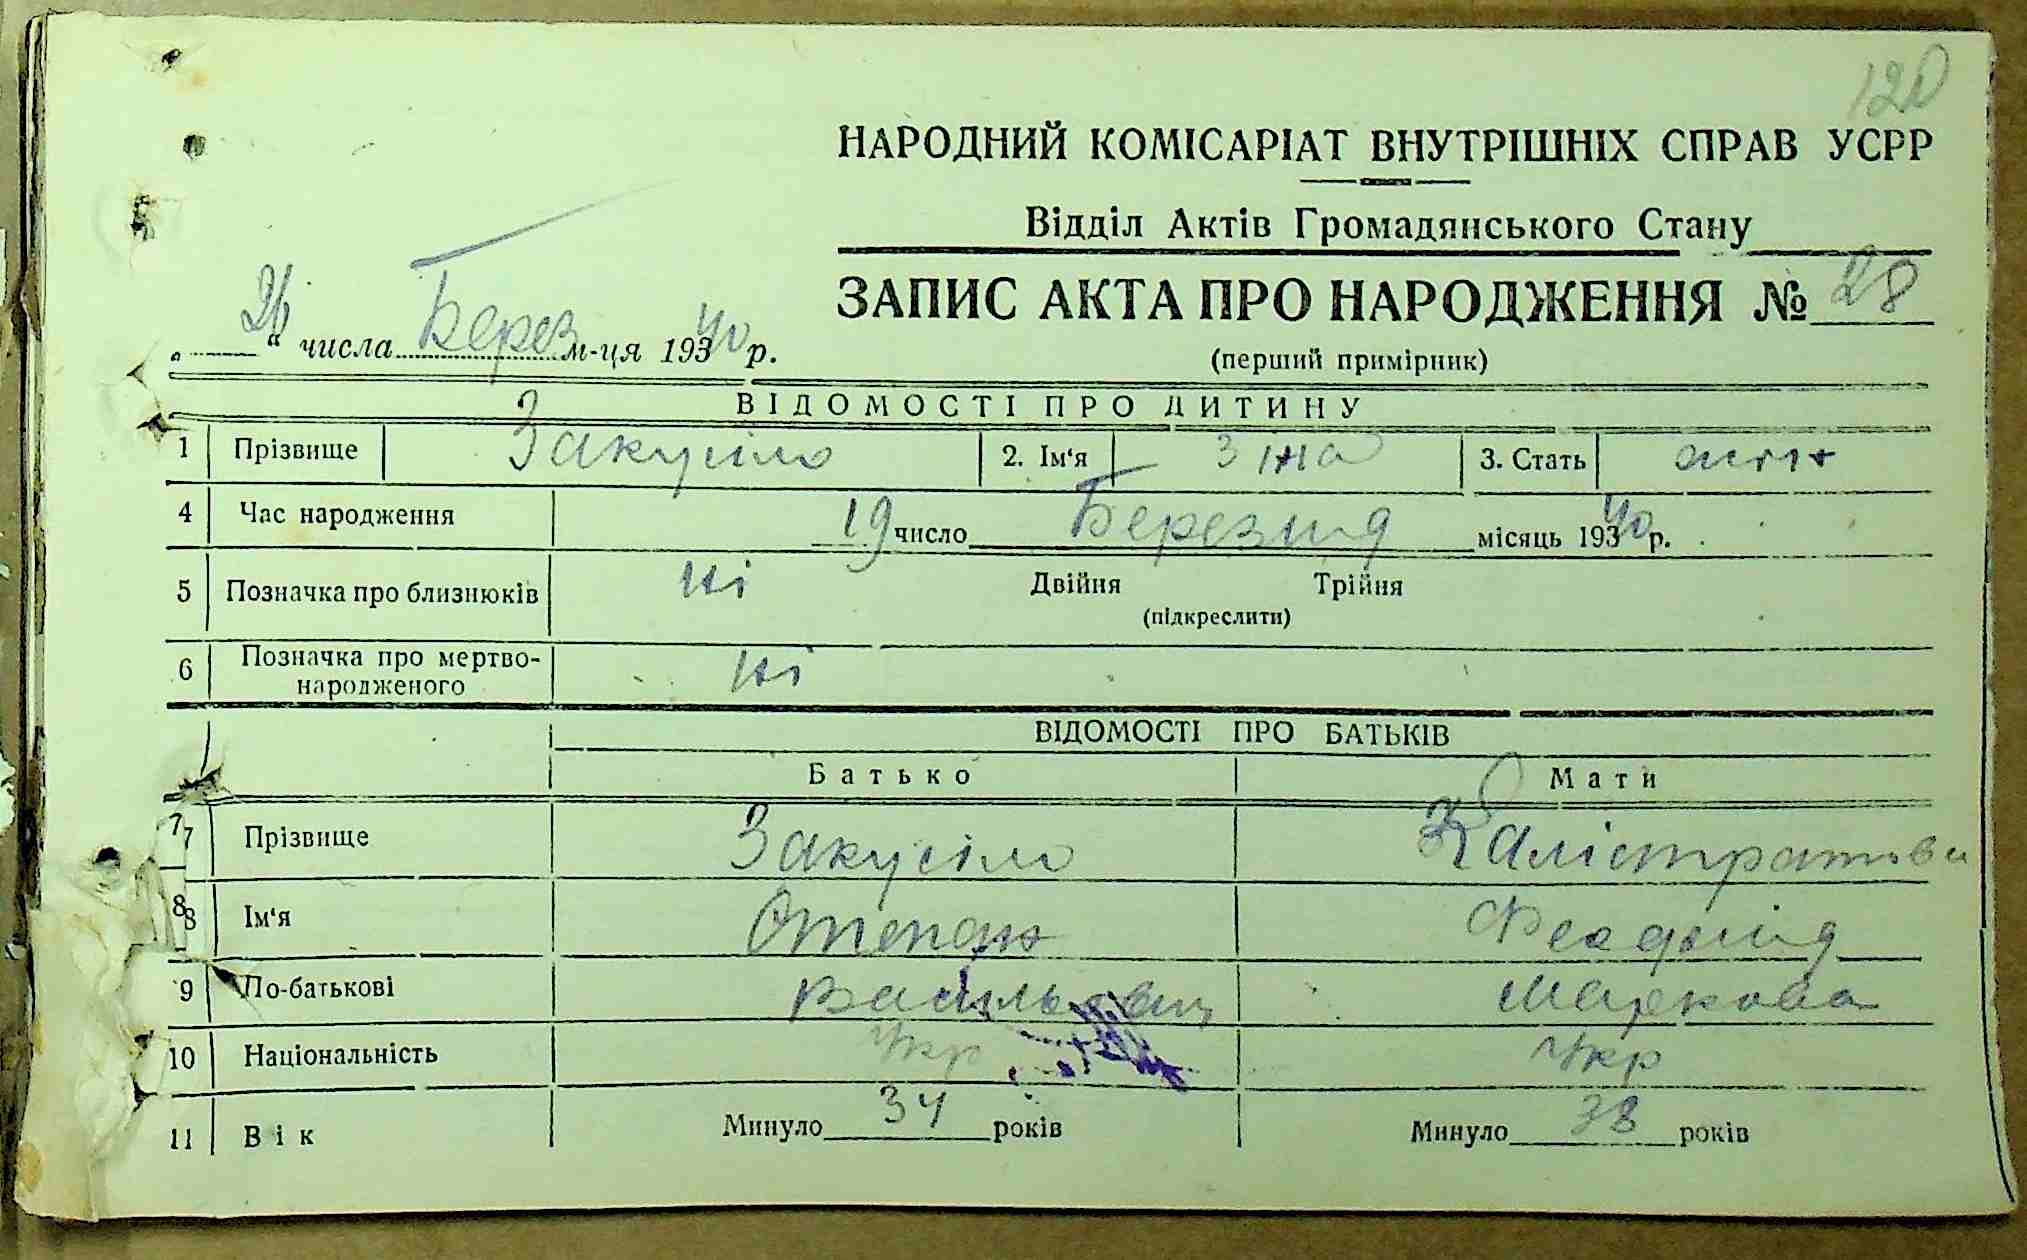 120
НАРОДНИЙ КОМІСАРІАТ ВНУТРІШНІХ СПРАВ УСРР
Відділ Актів Громадянського Стану
ЗАПИС АКТА ПРО НАРОДЖЕННЯ № 28
„26“ числа Берез м-ця 19340 р.
(перший примірник)
ВІДОМОСТІ ПРО ДИТИНУ
1 Прізвище Закусіло 2. Ім‘я Зіна 3. Стать жін
4 Час народження 19 число Березня місяць 19340 р.
5 Позначка про близнюків ні Двійня Трійня
(підкреслити)
6 Позначка про мертво-
народженого ні
ВІДОМОСТІ ПРО БАТЬКІВ
Батько Мати
7 Прізвище Закусіло Калістратова
8 Ім‘я Степан
9 По-батькові Васильович Маркова
10 Національність Укр Укр
11 Вік Минуло 34 років Минуло 38 років